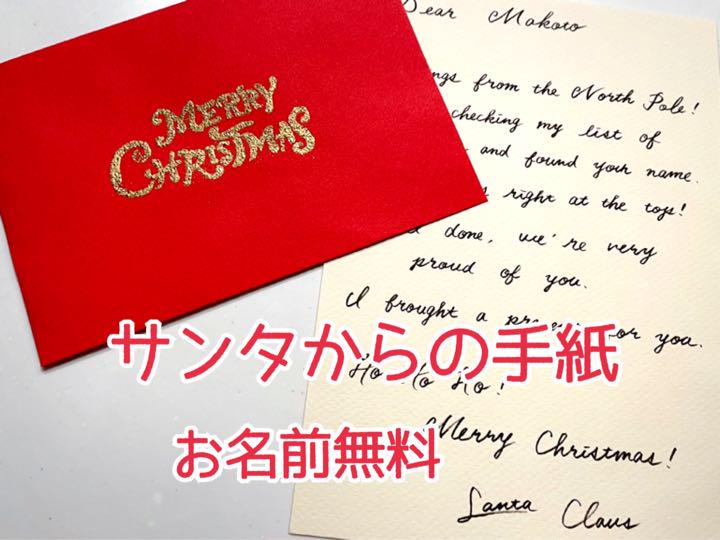 MERRY
CHRISTMAS
Dear Makoto
ngs from the North Pole!
checking my list of
and found your name.
s right at the top!
done, we're very
proud of you.
I brought a for you.
Ho Ho!
Merry Christmas!
Santa Claus
サンタからの手紙
お名前無料